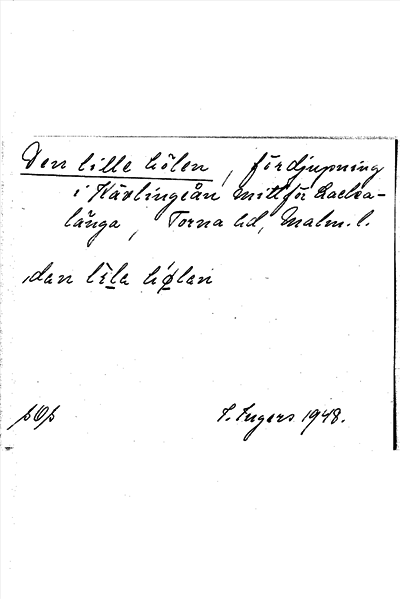 Den lille hölen, fördjupning
i Kävlingeån mittför Lacka-
länga, Torna hd, Malm. l.
dan lila hølan
I. Ingers 1948.